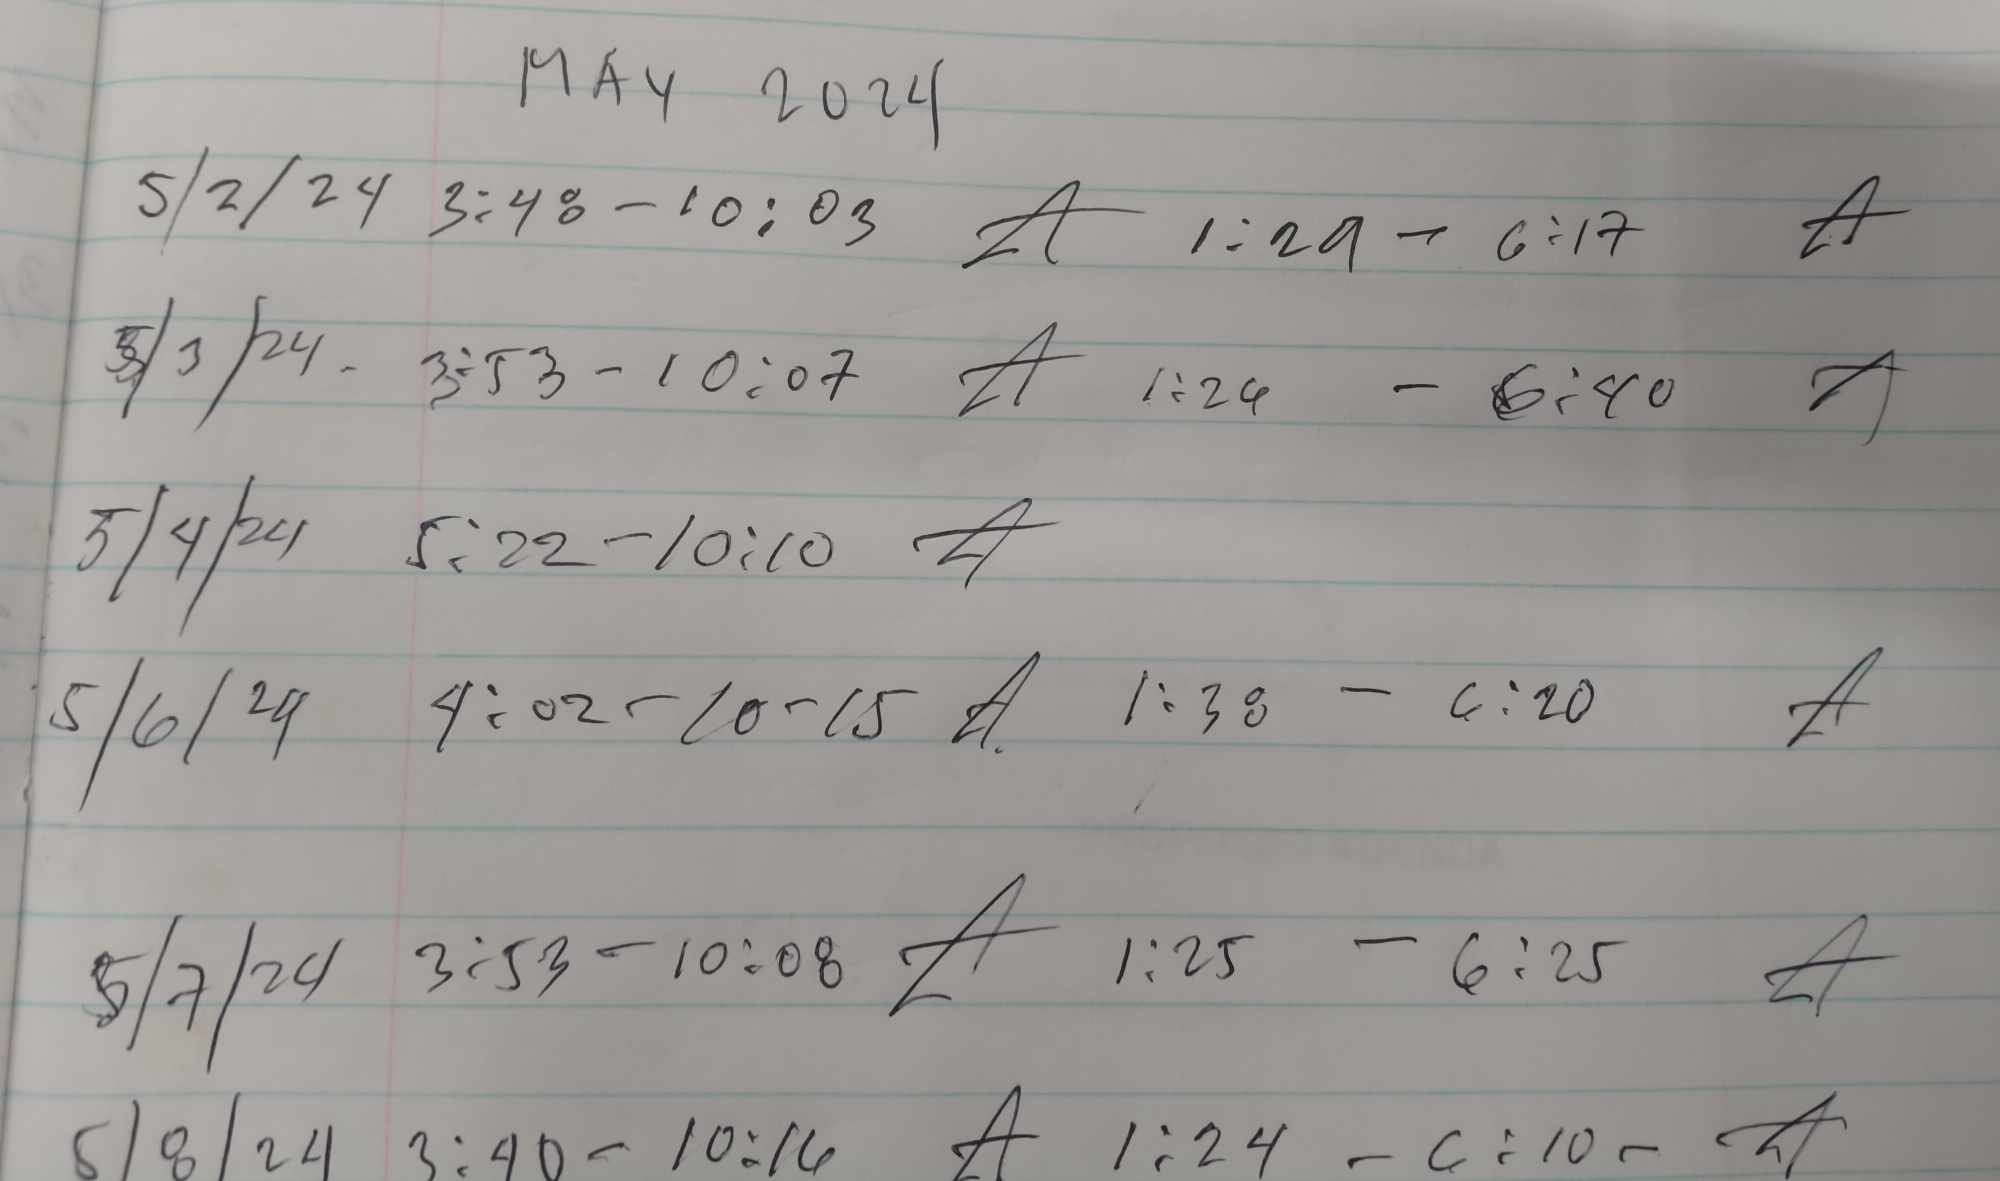 MAY 2024
5/2/24 3:48-10:03 A 1:29 - 6:17 A
5/3/24. 3:53-10:07 A 1:26 - 6:40 A
5/4/24 5:22-10:10 A
5/6/24 4:02-10-15 A 1:38 - 6:20 A
5/7/24 3:53-10:08 A 1:25 - 6:25 A
5/8/24 3:40-10:16 A 1:24 - 6:10- A